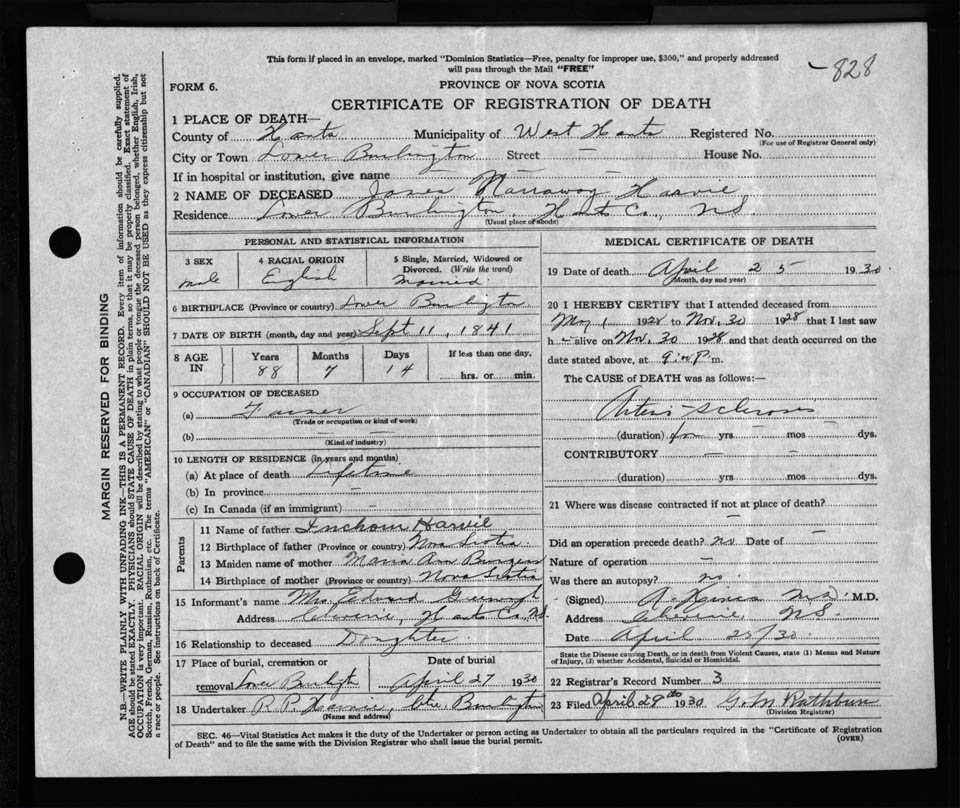 This form if placed in an envelope, marked "Dominion Statistics—Free, penalty for improper use, $300," and properly addressed
will pass through the Mail "FREE"
828
FORM 6.
PROVINCE OF NOVA SCOTIA
CERTIFICATE OF REGISTRATION OF DEATH
1 PLACE OF DEATH—
County of Hants Municipality of West Hants Registered No.
(For use of Registrar General only)
City or Town Lower Burlington Street — House No.
If in hospital or institution, give name — —
2 NAME OF DECEASED James Harvie
Residence Lower Burlington, Hants Co., N.S.
(Usual place of abode)
PERSONAL AND STATISTICAL INFORMATION
3 SEX male
4 RACIAL ORIGIN English
5 Single, Married, Widowed or Divorced. (Write the word) Married
6 BIRTHPLACE (Province or country) Lower Burlington
7 DATE OF BIRTH (month, day and year) Sept 11, 1841
8 AGE IN Years 88 Months 7 Days 14 If less than one day, hrs. or min.
9 OCCUPATION OF DECEASED
(a) Farmer
(Trade or occupation or kind of work)
(b) —
(Kind of industry)
10 LENGTH OF RESIDENCE (in years and months)
(a) At place of death Lifetime
(b) In province —
(c) In Canada (if an immigrant) —
Parents
11 Name of father Harvie
12 Birthplace of father (Province or country) Nova Scotia
13 Maiden name of mother Maria Ann
14 Birthplace of mother (Province or country) Nova Scotia
15 Informant's name Mrs Edward
Address Hants Co. N.S.
16 Relationship to deceased Daughter
17 Place of burial, cremation or removal Lower Burlington Date of burial April 27 1930
18 Undertaker R. P. Harvie, Burlington
(Name and address)
MEDICAL CERTIFICATE OF DEATH
19 Date of death April 25 1930
(Month, day and year)
20 I HEREBY CERTIFY that I attended deceased from
May 1 1928 to Nov. 30 1928 that I last saw
h alive on Nov. 30 1928 and that death occurred on the
date stated above, at 9 P m.
The CAUSE OF DEATH was as follows:—
Arterio-sclerosis
(duration) yrs — mos — dys.
CONTRIBUTORY —
(duration) — yrs — mos — dys.
21 Where was disease contracted if not at place of death?
—
Did an operation precede death? no Date of —
Nature of operation —
Was there an autopsy? no
(Signed) M.D. M.D.
Address N.S.
Date April 25/30
State the Disease causing Death, or in death from Violent Causes, state (1) Means and Nature
of Injury, (2) whether Accidental, Suicidal or Homicidal.
22 Registrar's Record Number 3
23 Filed April 29 1930 G. M Rathbun
(Division Registrar)
SEC. 46—Vital Statistics Act makes it the duty of the Undertaker or person acting as Undertaker to obtain all the particulars required in the "Certificate of Registration
of Death" and to file the same with the Division Registrar who shall issue the burial permit.
(OVER)
MARGIN RESERVED FOR BINDING
N.B.—WRITE PLAINLY WITH UNFADING INK—THIS IS A PERMANENT RECORD. Every item of information should be carefully supplied.
AGE should be stated EXACTLY. PHYSICIANS should STATE CAUSE OF DEATH in plain terms, so that it may be properly classified. Exact statement of
OCCUPATION is very important. RACIAL ORIGIN will be described by stating to what people or tongue the deceased person belonged, whether English, Irish,
Scotch, French, German, Russian, Ruthenian, etc. The terms "AMERICAN" or "CANADIAN" SHOULD NOT BE USED as they express citizenship but not
a race or people. See instructions on back of Certificate.